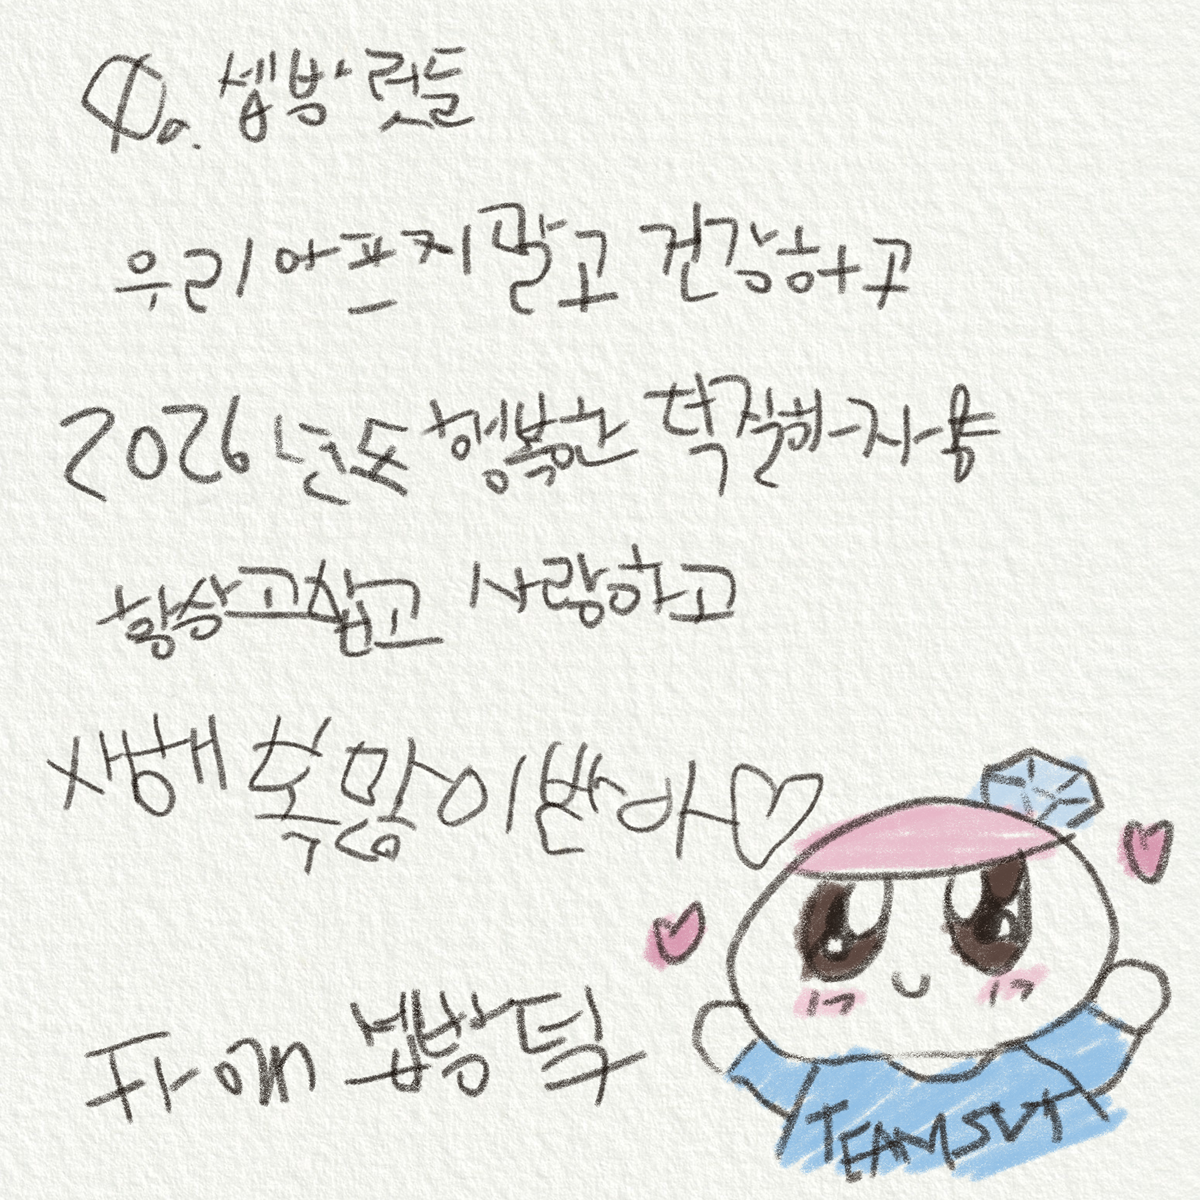 셉방 럿들
우리 아프지 말고 건강하고
2026년도 행복한 덕질하자
항상 고맙고 사랑하고
새해 복 많이 받아♡
TEAM SVT